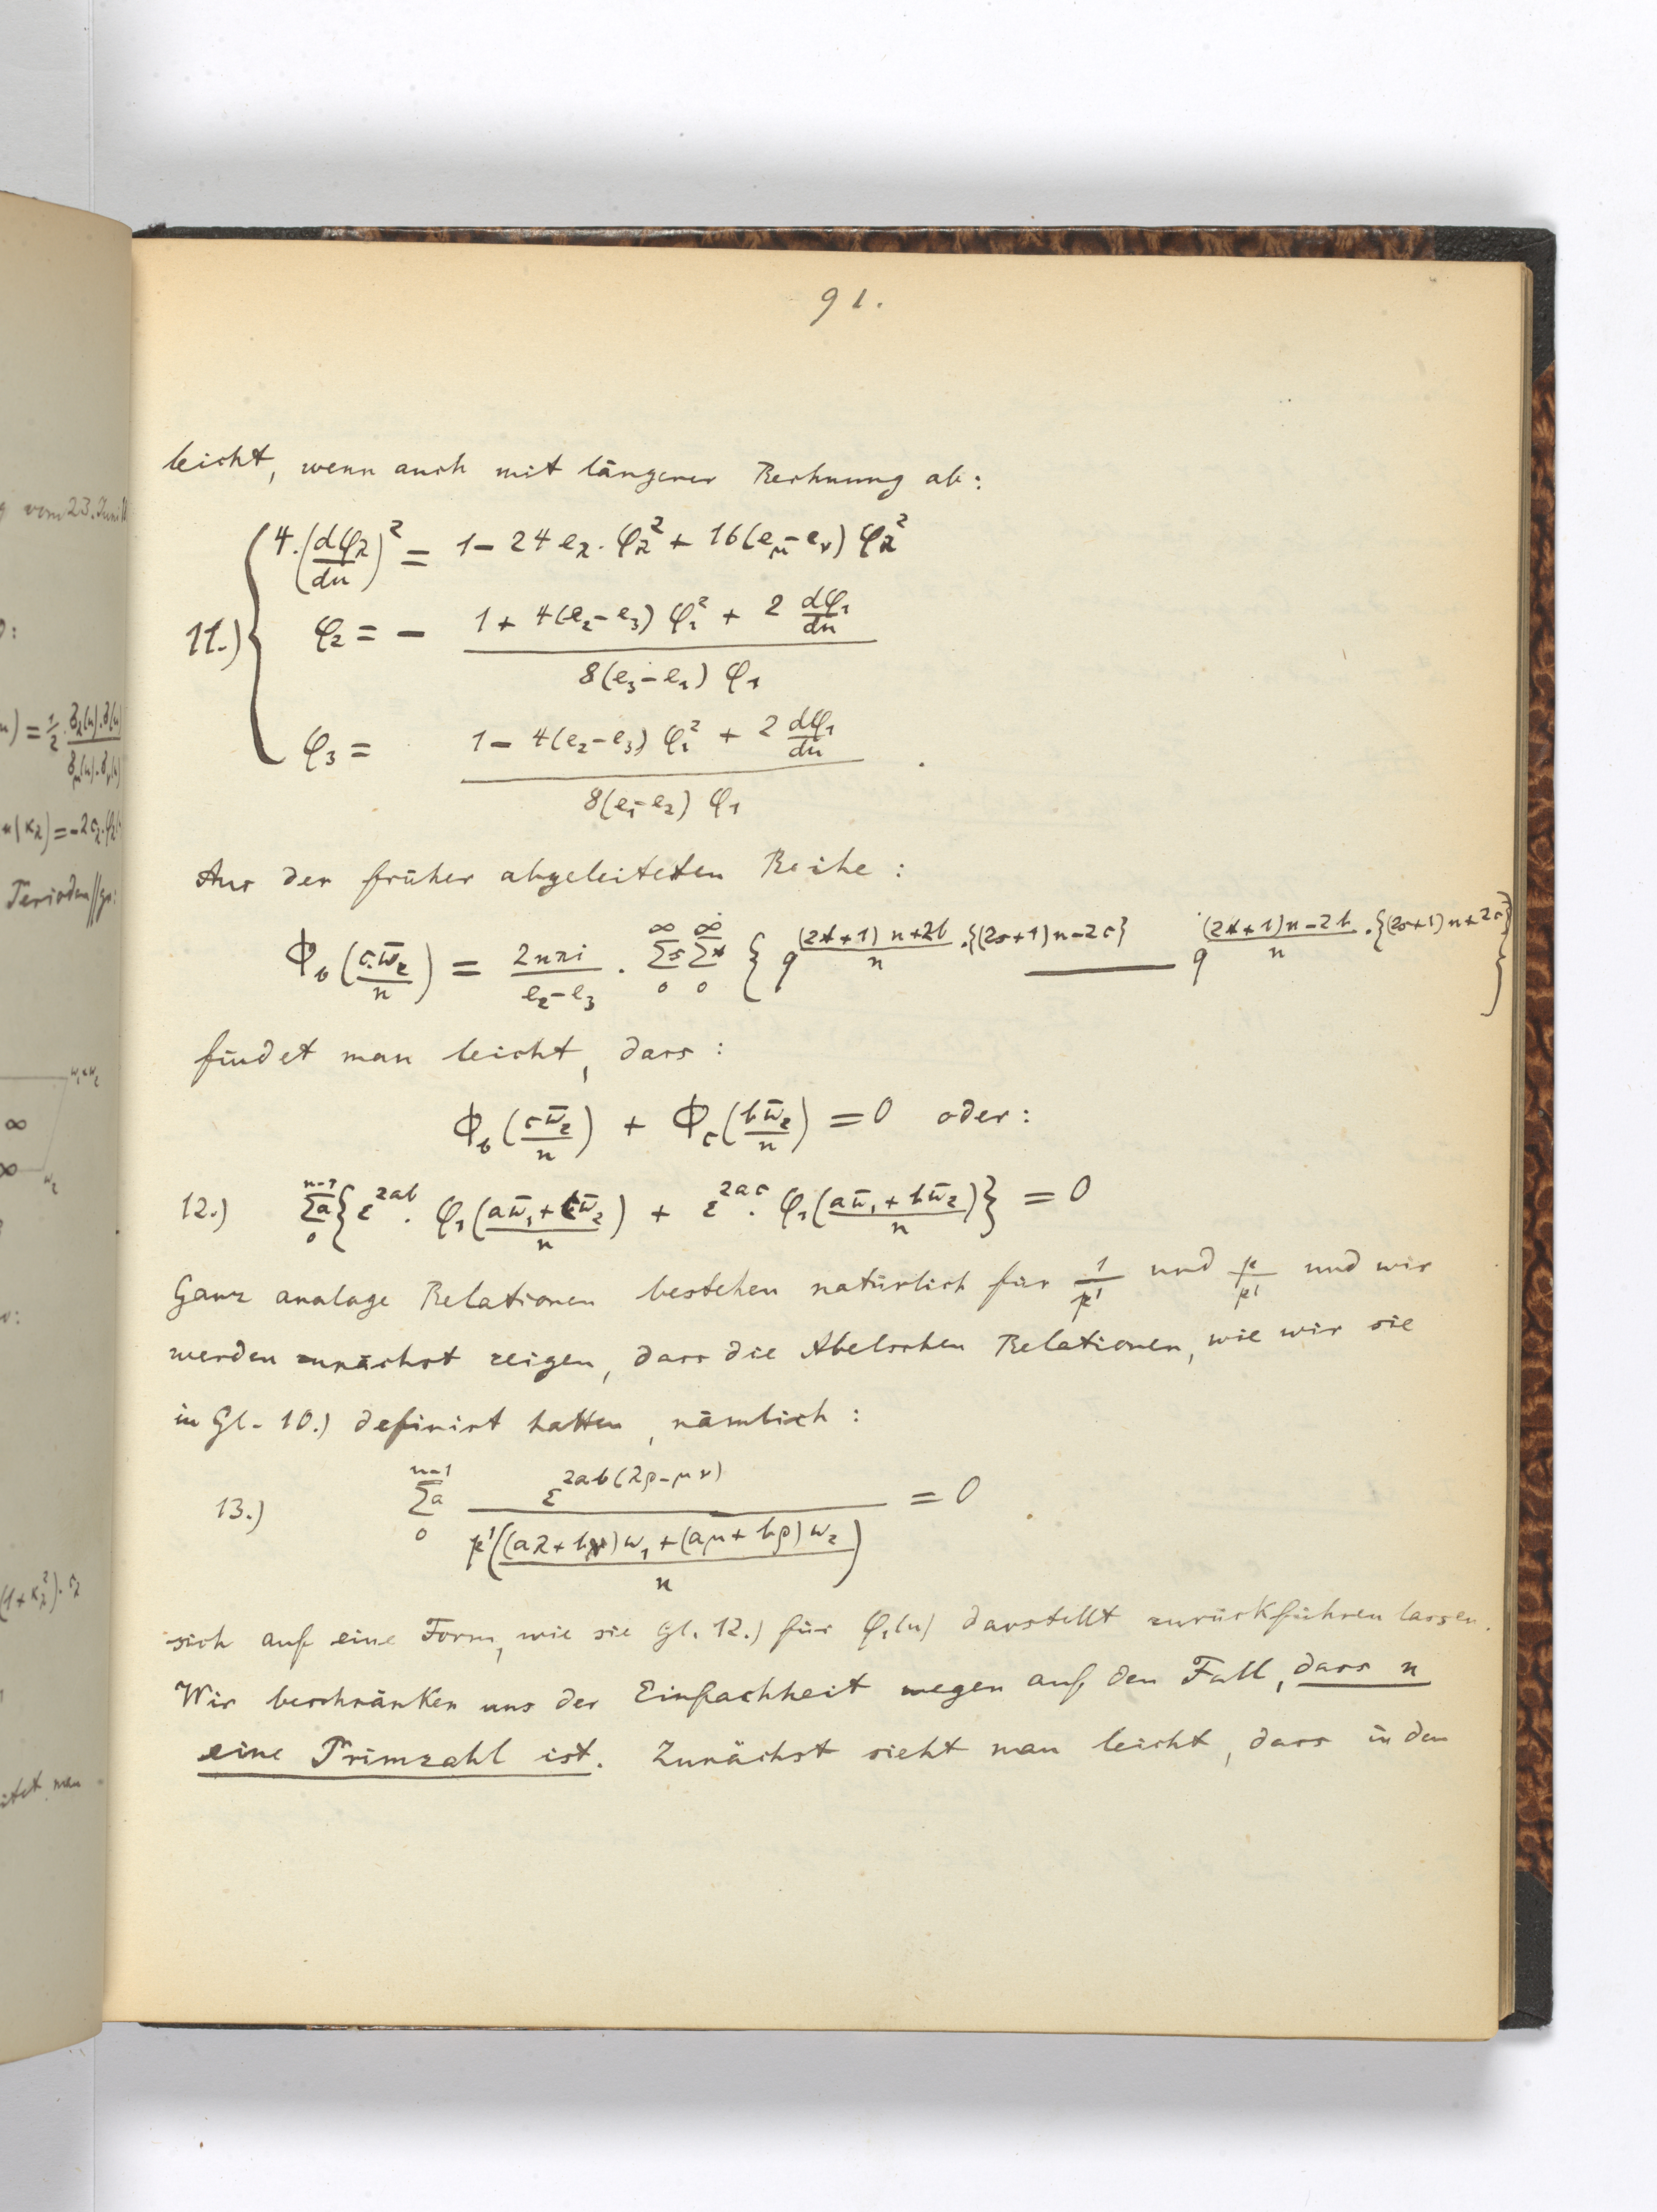 91.
leicht, wenn auch mit längerer Rechnung ab:
4.(dφλ/du)² = 1 - 24 eλ. φλ² + 16(eμ - eν) φλ²
11.) φ₂ = - (1 + 4(e₂-e₃) φ₁² + 2 dφ₁/du) / (8(e₃-e₁) φ₁)
φ₃ = (1 - 4(e₂-e₃) φ₁² + 2 dφ₁/du) / (8(e₁-e₂) φ₁) .
Aus der früher abgeleiteten Reihe:
Φ_b(cω̄₂/n) = 2nπi/(e₂-e₃) . Σs₀^∞ Σt₀^∞ { q^((2t+1)n+2b)/n .{(2s+1)n-2c} — q^((2t+1)n-2b)/n .{(2s+1)n+2c} }
findet man leicht, dass:
Φ_b(cω̄₂/n) + Φ_c(bω̄₂/n) = 0 oder:
12.) Σa₀^(n-1) { ε^2ab . φ₁((aω̄₁+cω̄₂)/n) + ε^2ac . φ₁((aω̄₁+bω̄₂)/n) } = 0
Ganz analoge Relationen bestehen natürlich für 1/p' und p/p' und wir
werden zunächst zeigen, dass die Abelschen Relationen, wie wir sie
in Gl. 10.) definirt hatten, nämlich:
13.) Σa₀^(n-1) ε^2ab(λρ-μν) / p'(((aλ+bν)ω₁+(aμ+bρ)ω₂)/n) = 0
sich auf eine Form, wie sie Gl. 12.) für φ₁(u) darstellt zurückführen lassen.
Wir beschränken uns der Einfachheit wegen auf den Fall, dass n
eine Primzahl ist. Zunächst sieht man leicht, dass in den
vom 23. Juni
) = ½.
= -2c₂.φ₂
Perioden
ω₁+ω₂
∞
∞
ω₂
(1+κλ²).
man